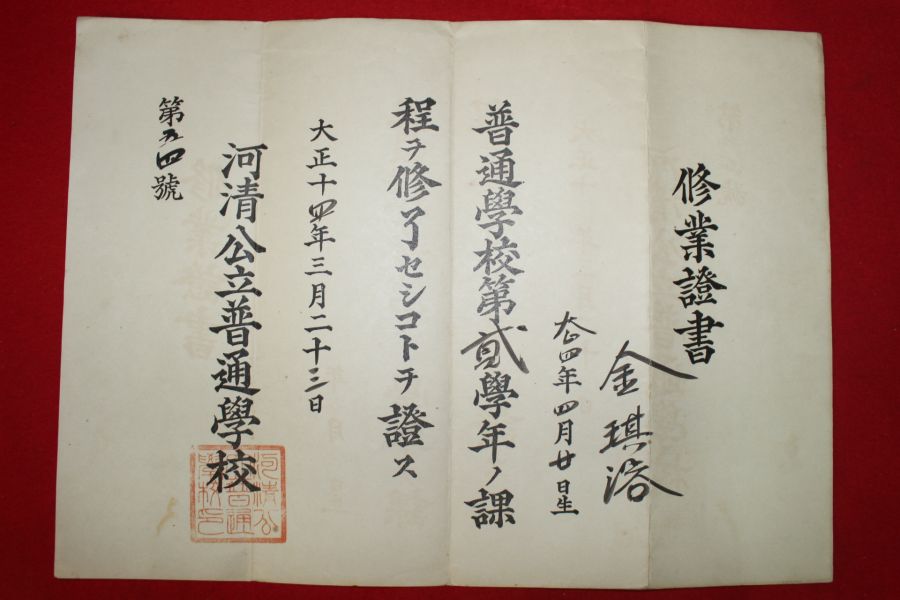 修業證書
金琪洛
大正四年四月廿日生
普通學校第貳學年ノ課
程ヲ修了セシコトヲ證ス
大正十四年三月二十三日
河清公立普通學校
第九四號
河清公
立普通
學校印